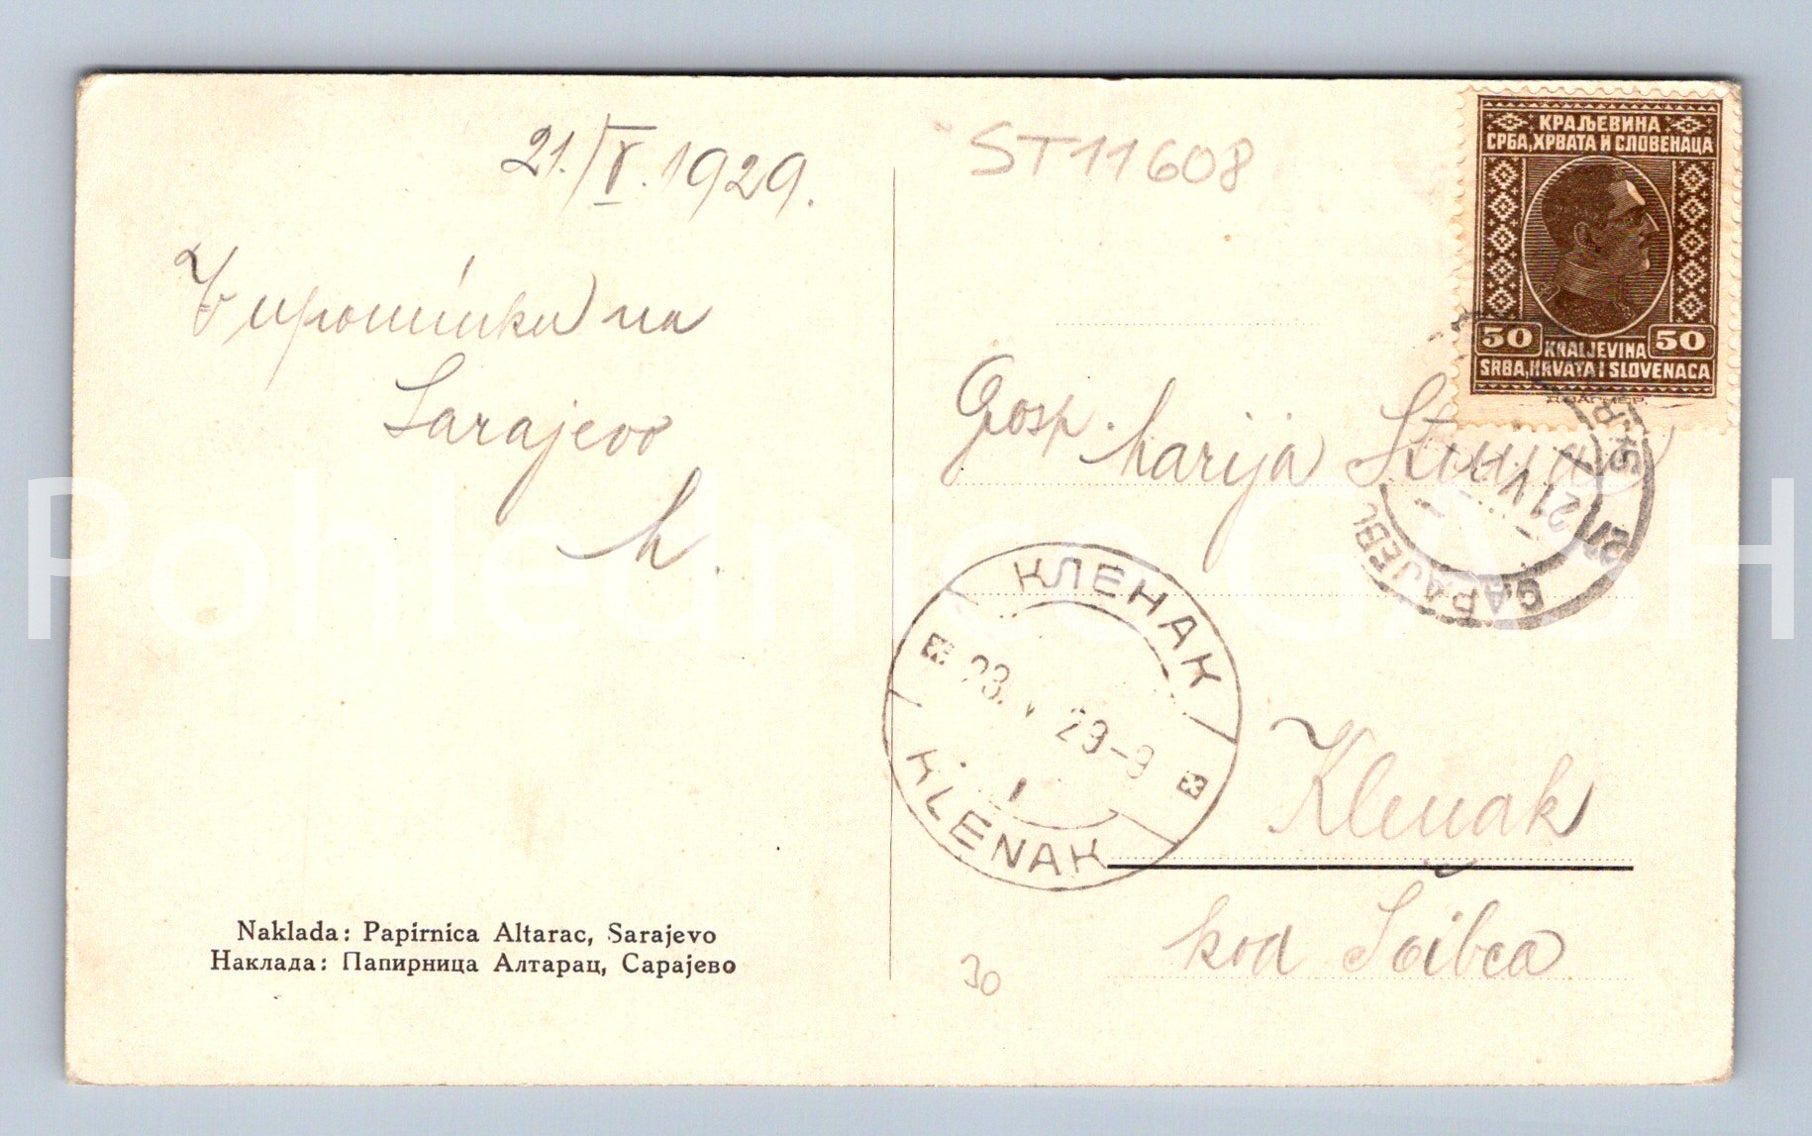 21./V. 1929.
V upomínku na
Sarajevo
M.
Naklada: Papirnica Altarac, Sarajevo
Наклада: Папирница Алтарац, Сарајево
ST11608
КРАЉЕВИНА
СРБА, ХРВАТА И СЛОВЕНАЦА
50 50
KRALJEVINA
SRBA, HRVATA I SLOVENACA
САРАЈЕВО
21 V
Gosp. Marija
КЛЕНАК
23. V 29-9
KLENAK
Klenak
kod Šaibca
30
Pohlednice GASH